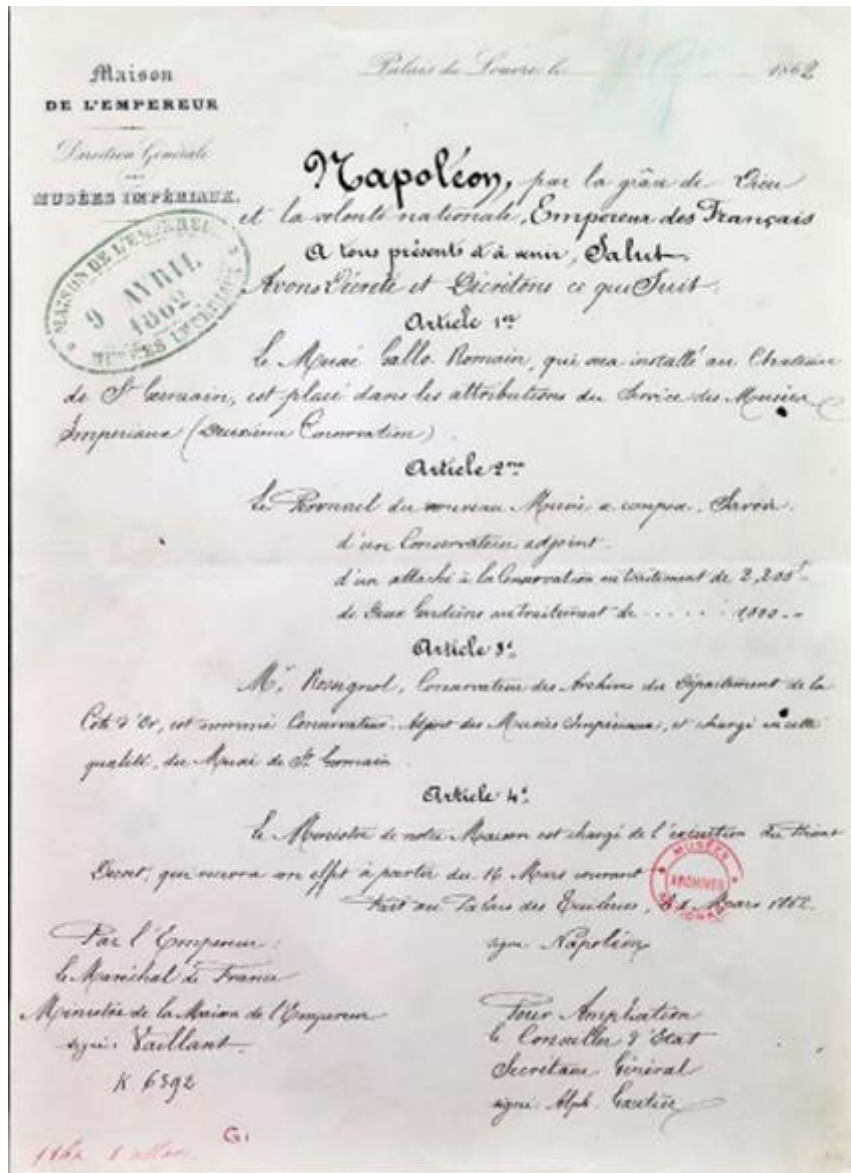 Maison
DE L'EMPEREUR
Direction Générale
DES
MUSÉES IMPÉRIAUX.
Palais du Louvre, le 1862
MAISON DE L'EMPEREUR
9 AVRIL
1862
MUSÉES IMPÉRIAUX
Napoléon, par la grâce de Dieu
et la volonté nationale, Empereur des Français
A tous présents et à venir, Salut.
Avons Décrété et Décrétons ce qui Suit:
Article 1er
Le Musée Gallo-Romain, qui sera installé au Chateau
de St Germain, est placé dans les attributions du Service des Musées
Impériaux (Deuxième Conservation)
Article 2me
Le Personnel du nouveau Musée se compose, Savoir:
d'un Conservateur adjoint.
d'un attaché à la Conservation au traitement de 2,200f..
de Deux Gardiens au traitement de ...... 1,000..
Article 3e.
Mr. Rossignol, Conservateur des Archives du Département de la
Côte d'Or, est nommé Conservateur-Adjoint des Musées Impériaux, et chargé en cette
qualité, du Musée de St. Germain.
Article 4e.
Le Ministre de notre Maison est chargé de l'exécution du Présent
Décret, qui recevra son effet à partir du 16 Mars courant
Fait au Palais des Tuileries, le 8 Mars 1862.
MUSÉES
ARCHIVES
NATIONAUX
Par l'Empereur:
Le Maréchal de France
Ministre de la Maison de l'Empereur
signé: Vaillant.
K 6392
signé Napoléon
Pour Ampliation
Le Conseiller d'Etat
Secrétaire Général
signé: Alph. Gautier
G1
1862 8